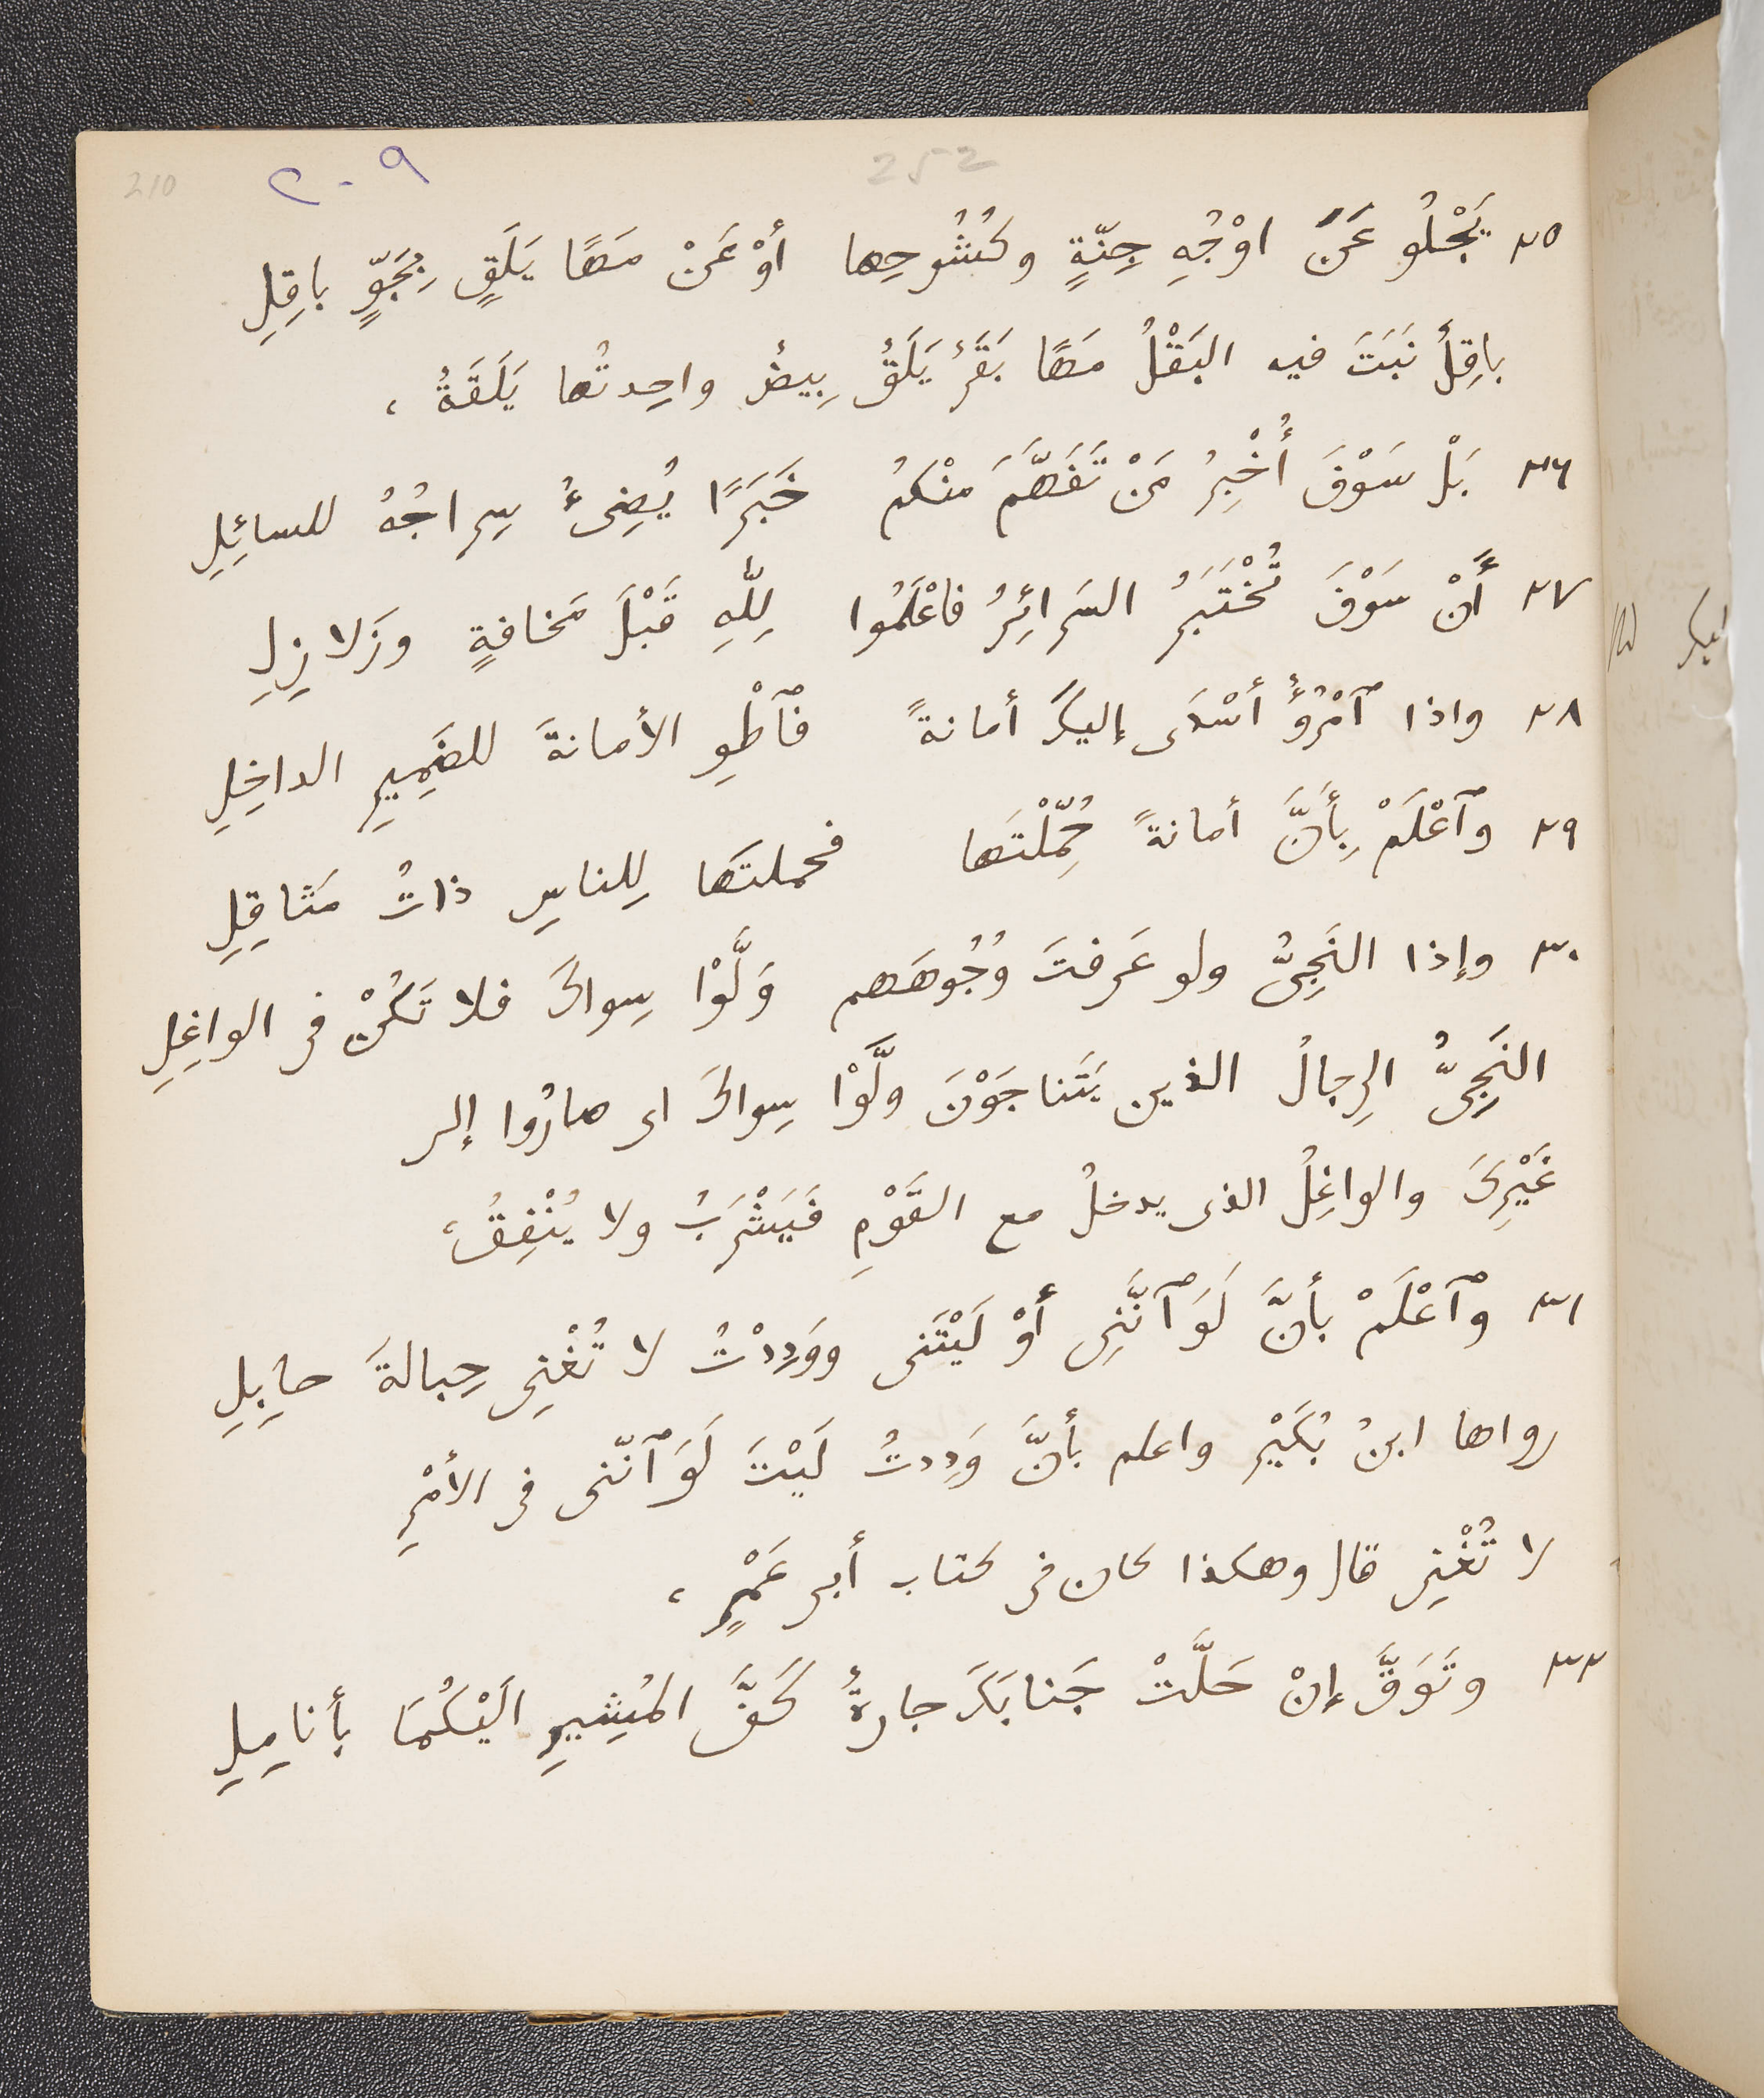 210 ٢٠٩ 252
٢٥ يَجْلُو عَنَ اوْجُهِ جِنّةٍ وكُشُوحِها أوْ عَنْ مَهًا يَلَقٍ بِجَوٍّ باقِلِ
باقِلٌ نَبَتَ فيه البَقْلُ مَهًا بَقَرٌ يَلَقٌ بِيضٌ واحِدتُها يَلَقَةٌ،
٢٦ بَلْ سَوْفَ أُخْبِرُ مَنْ تَفَهَّمَ مِنْكمُ خَبَرًا يُضِىءُ سِراجُهُ للسائِلِ
٢٧ أَنْ سَوْفَ تُخْتَبَرُ السَرائِرُ فاعْلَمُوا لِلّٰهِ قَبْلَ مَخافةٍ وزَلازِلِ
٢٨ واذا ٱمْرُؤٌ أسْدَى إليكَ أمانةً فٱطْوِ الأمانةَ للضَمِيرِ الداخِلِ
٢٩ وٱعْلَمْ بِأَنَّ أمانةً حُمِّلْتَها فحملتَها لِلناسِ ذاتُ مَثاقِلِ
٣٠ وإذا النَجِىُّ ولو عَرفتَ وُجُوهَهم وَلَّوْا سِواكَ فلا تَكُنْ فى الواغِلِ
النَجِىُّ الرِجالُ الذين يَتَناجَوْنَ ولَّوْا سِواكَ اى صارُوا إلى
غَيْرِكَ والواغِلُ الذى يدخلُ مع القَوْمِ فَيَشْرَبُ ولا يُنْفِقُ،
٣١ وٱعْلَمْ بأنَّ لَوَ ٱنَّنِى أَوْ لَيْتَنى ووَدِدْتُ لا تُغْنِى حِبالةَ حابِلِ
رواها ابنُ بُكَيْرٍ واعلم بأنَّ وَدِدتُ لَيْتَ لَوَ ٱنّنى فى الأمْرِ
لا تُغْنِى قال وهكذا كان فى كتاب أبى عَمْرٍ،
٣٢ وتَوَقَّ إنْ حَلَّتْ جَنابَكَ جارةٌ كَفَّ المُشِيرِ الَيْكُمَا بأنامِلِ